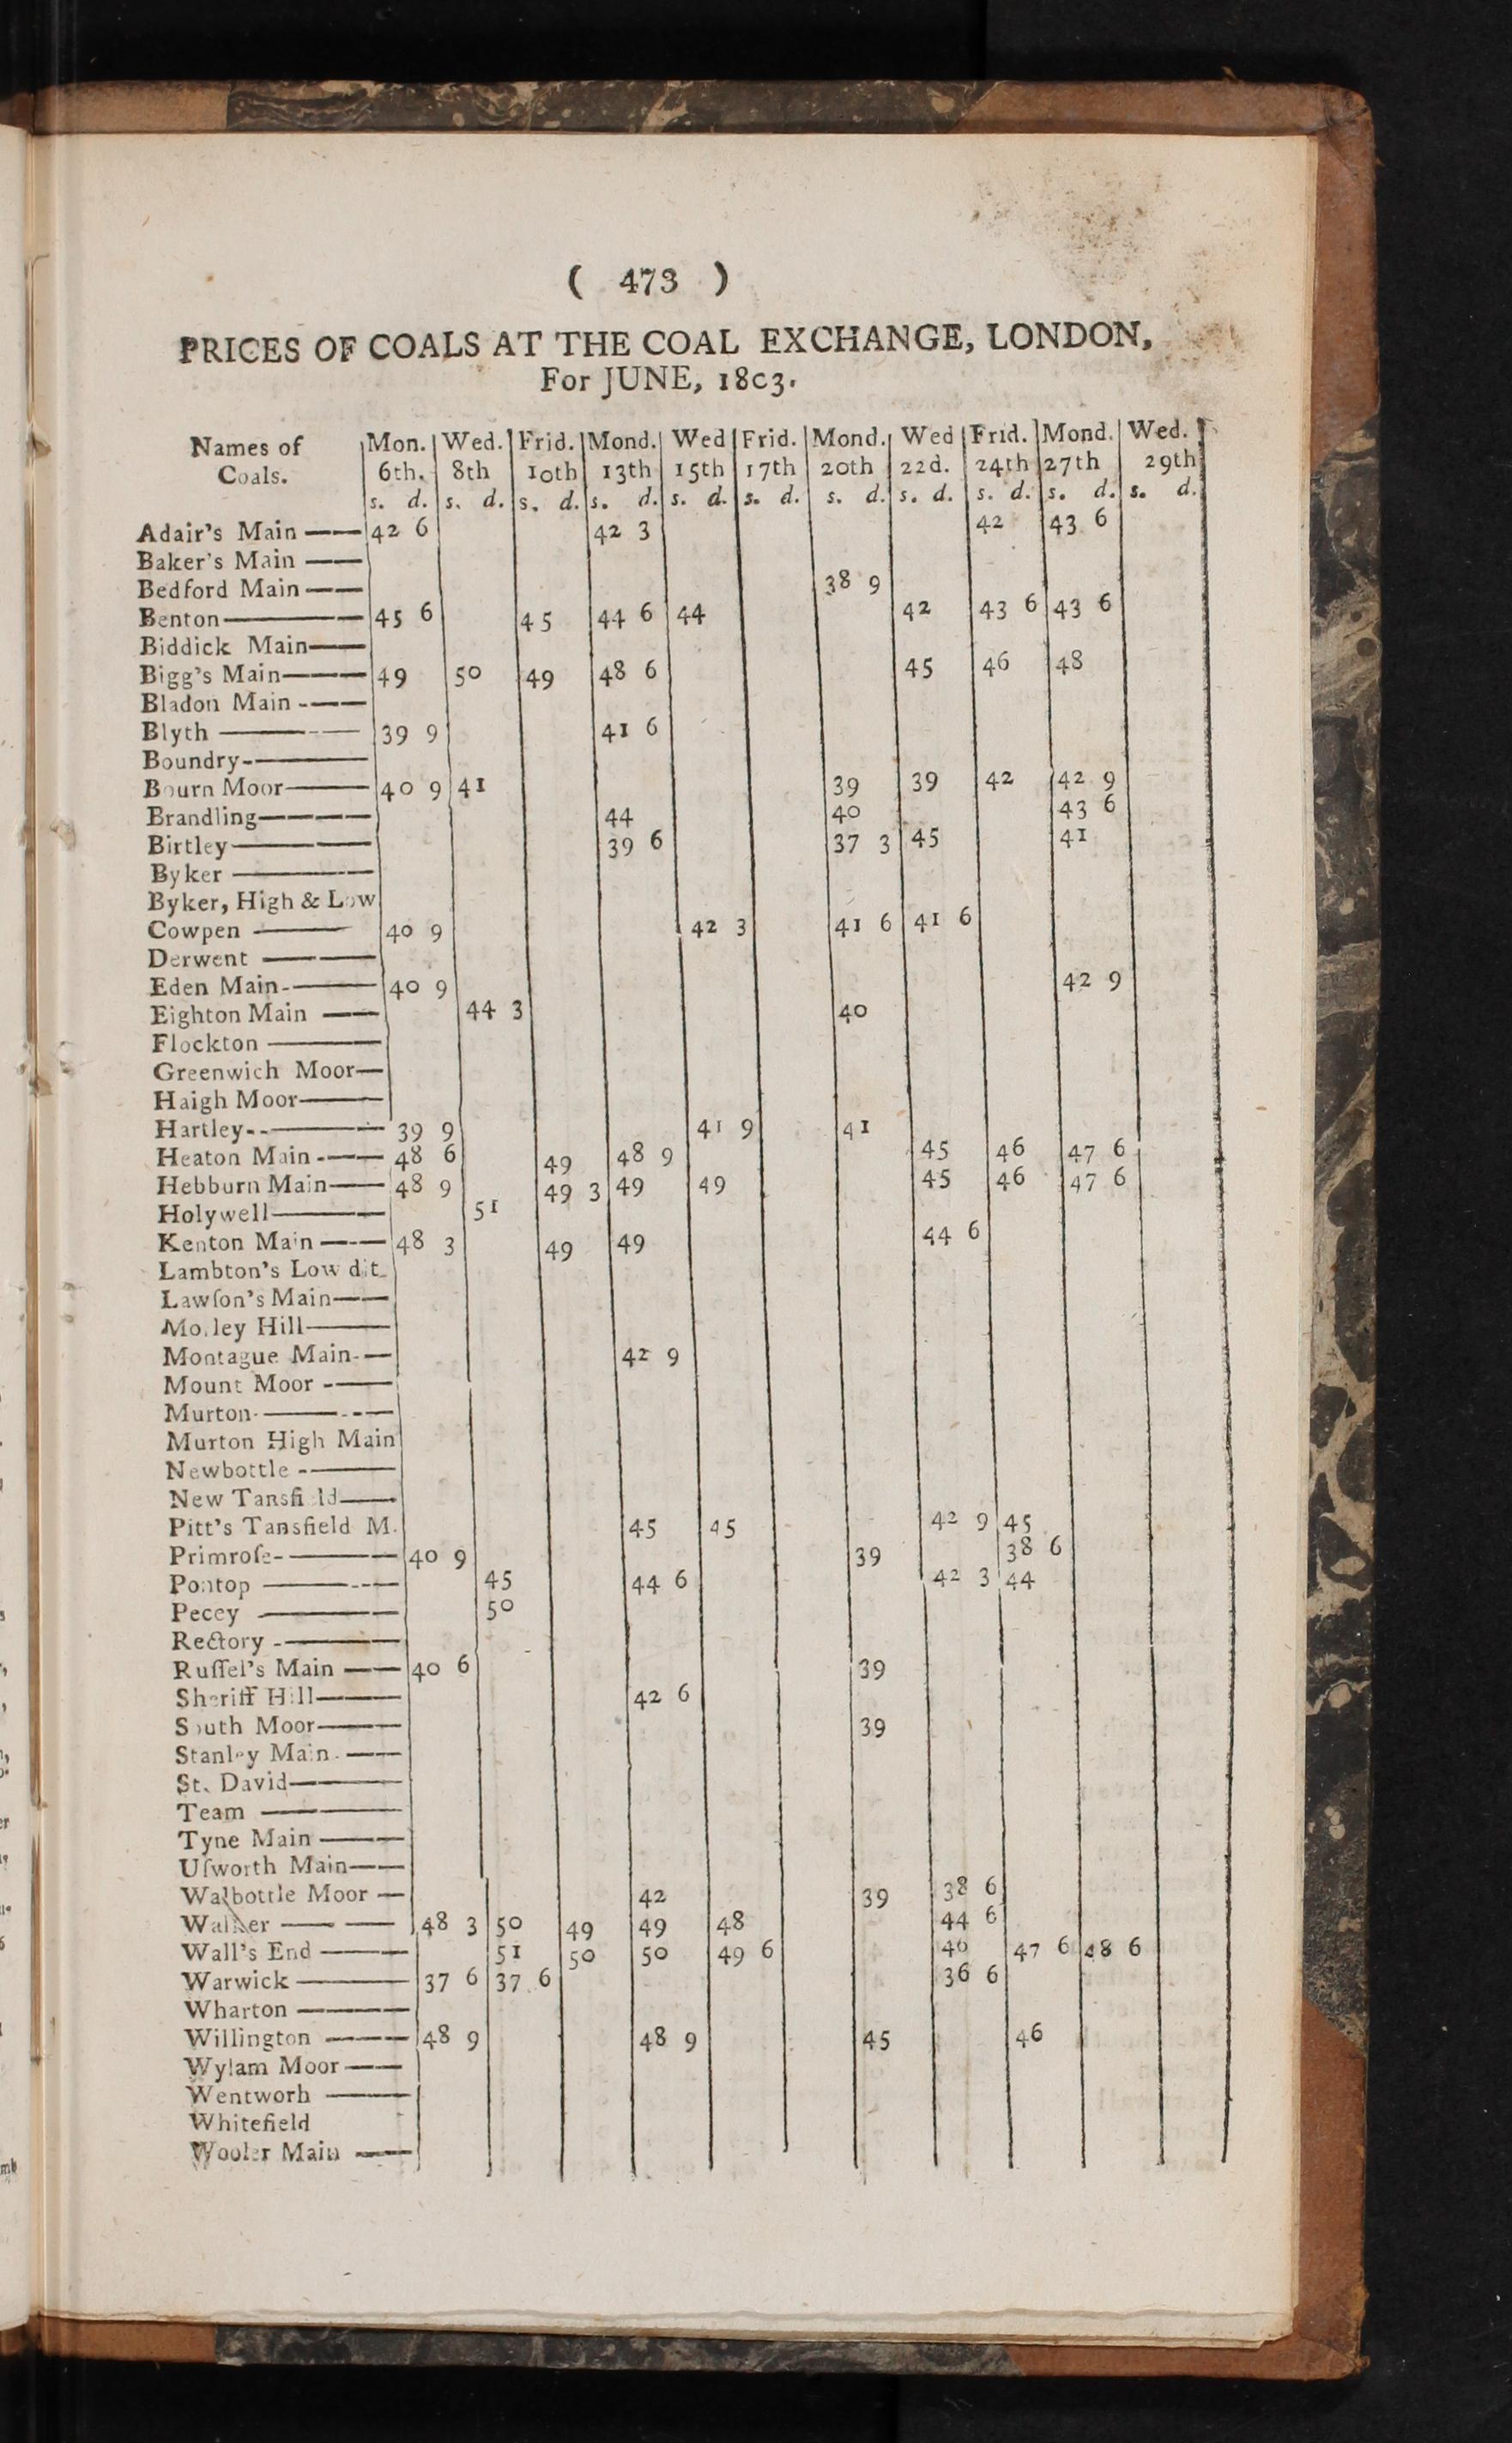 ( 473 )
PRICES OF COALS AT THE COAL EXCHANGE, LONDON,
For JUNE, 18c3.
Names of Coals. | Mon. 6th. | Wed. 8th | Frid. 10th | Mond. 13th | Wed 15th | Frid. 17th | Mond. 20th | Wed 22d. | Frid. 24th | Mond. 27th | Wed. 29th
s. d. | s. d. | s. d. | s. d. | s. d. | s. d. | s. d. | s. d. | s. d. | s. d. | s. d.
Adair's Main —— 42 6 | 42 3 | 42 | 43 6
Baker's Main ——
Bedford Main —— 38 9
Benton —— 45 6 | 45 | 44 6 | 44 | 42 | 43 6 | 43 6
Biddick Main——
Bigg's Main—— 49 | 50 | 49 | 48 6 | 45 | 46 | 48
Bladon Main ----
Blyth —— 39 9 | 41 6
Boundry-——
Bourn Moor—— 40 9 | 41 | 39 | 39 | 42 | 42 9
Brandling—— 44 | 40 | 43 6
Birtley—— 39 6 | 37 3 | 45 | 41
Byker ——
Byker, High & Low
Cowpen —— 40 9 | 42 3 | 41 6 | 41 6
Derwent ——
Eden Main-—— 40 9 | 42 9
Eighton Main —— 44 3 | 40
Flockton ——
Greenwich Moor—
Haigh Moor——
Hartley--—— 39 9 | 41 9 | 41
Heaton Main -—— 48 6 | 49 | 48 9 | 45 | 46 | 47 6
Hebburn Main—— 48 9 | 49 3 | 49 | 49 | 45 | 46 | 47 6
Holywell—— 51
Kenton Main —— 48 3 | 49 | 49 | 44 6
Lambton's Low dit.
Lawſon's Main——
Mo.ley Hill——
Montague Main-— 42 9
Mount Moor -——
Murton-——
Murton High Main
Newbottle -——
New Tansfi ld——
Pitt's Tansfield M. 45 | 45 | 42 9 | 45
Primroſe-—— 40 9 | 39 | 38 6
Pontop —— 45 | 44 6 | 42 3 | 44
Pecey —— 50
Rectory -——
Ruſſel's Main —— 40 6 | 39
Sheriff Hill—— 42 6
South Moor—— 39
Stanley Main-——
St. David——
Team ——
Tyne Main ——
Uſworth Main——
Walbottle Moor — 42 | 39 | 38 6
Walker —— 48 3 | 50 | 49 | 49 | 48 | 44 6
Wall's End —— 51 | 50 | 50 | 49 6 | 46 | 47 6 | 48 6
Warwick —— 37 6 | 37 6 | 36 6
Wharton ——
Willington —— 48 9 | 48 9 | 45 | 46
Wylam Moor——
Wentworh ——
Whitefield
Wooler Main ——